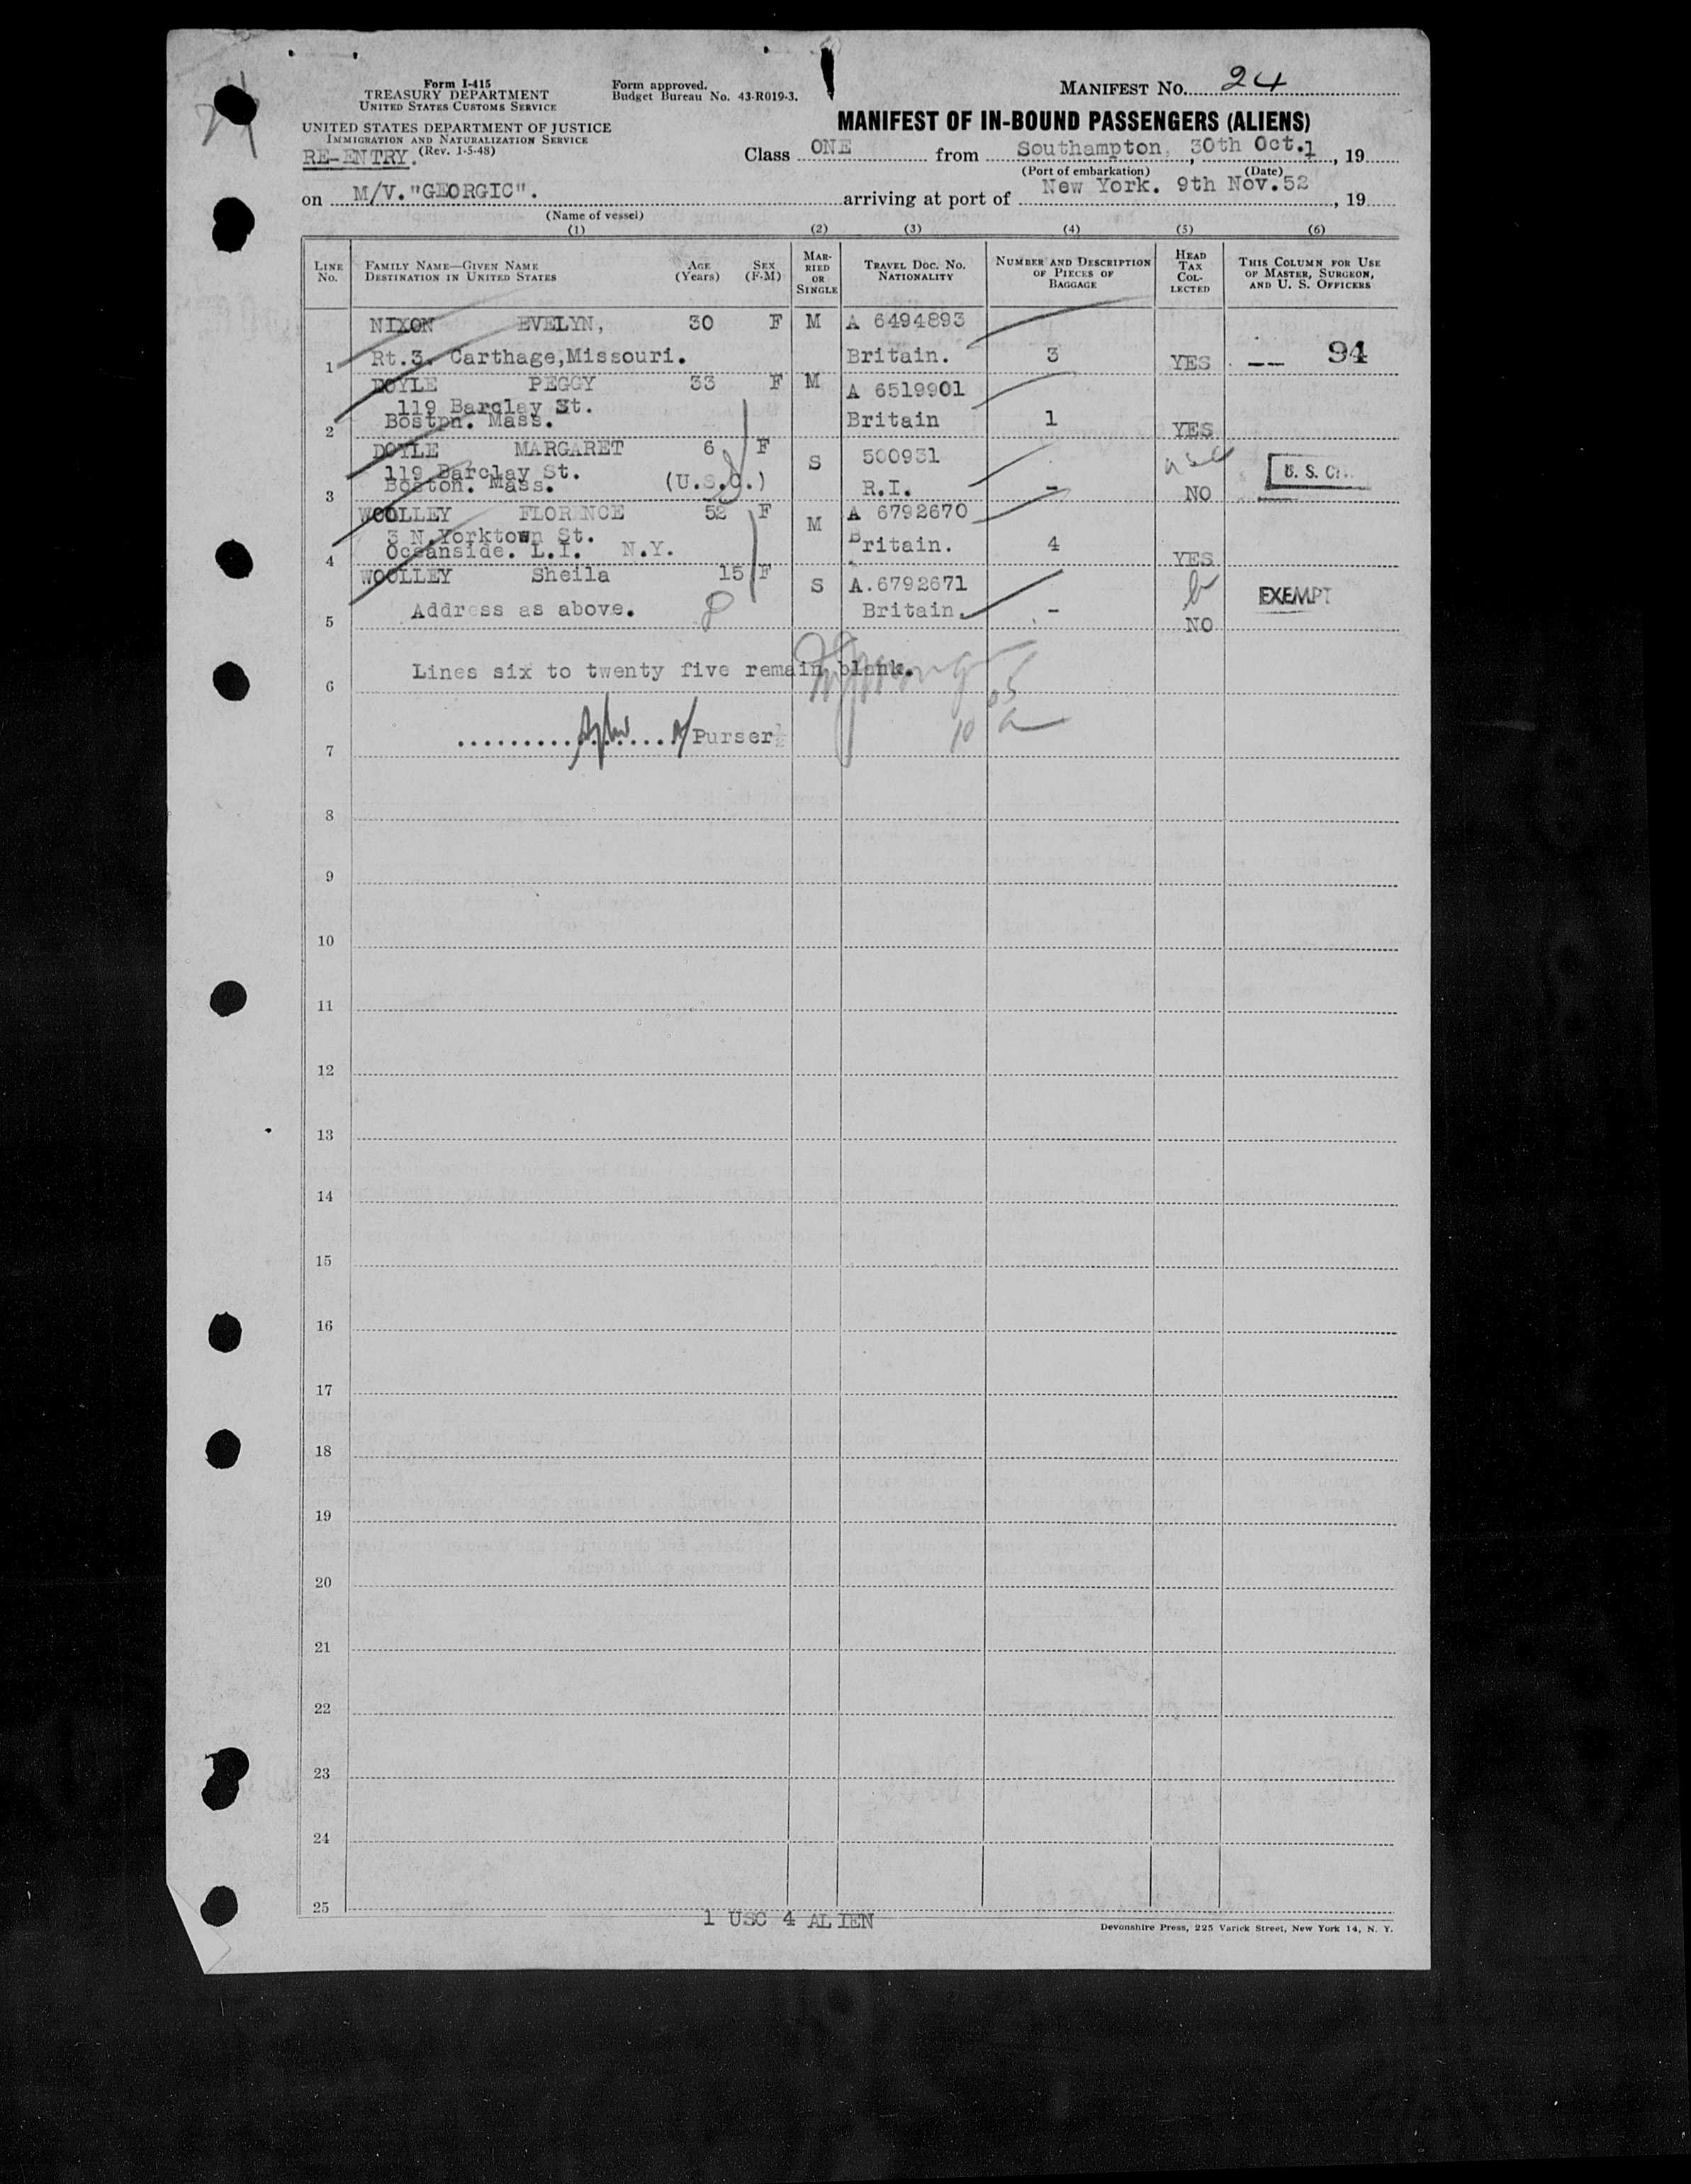 Form I-415
TREASURY DEPARTMENT
UNITED STATES CUSTOMS SERVICE
Form approved.
Budget Bureau No. 43-R019-3.
MANIFEST No. 24
UNITED STATES DEPARTMENT OF JUSTICE
IMMIGRATION AND NATURALIZATION SERVICE
(Rev. 1-5-48)
RE-ENTRY.
MANIFEST OF IN-BOUND PASSENGERS (ALIENS)
Class ONE from Southampton, 30th Oct.1, 19
(Port of embarkation) (Date)
on M/V."GEORGIC". arriving at port of New York. 9th Nov.52, 19
(Name of vessel)
(1) (2) (3) (4) (5) (6)
LINE No. FAMILY NAME—GIVEN NAME DESTINATION IN UNITED STATES AGE (Years) SEX (F-M) MARRIED OR SINGLE TRAVEL DOC. NO. NATIONALITY NUMBER AND DESCRIPTION OF PIECES OF BAGGAGE HEAD TAX COLLECTED THIS COLUMN FOR USE OF MASTER, SURGEON, AND U. S. OFFICERS
NIXON EVELYN, 30 F M A 6494893
1 Rt.3. Carthage,Missouri. Britain. 3 YES -- 94
DOYLE PEGGY 33 F M A 6519901
119 Barclay St.
2 Bostpn. Mass. Britain 1 YES
DOYLE MARGARET 6 F S 500931 usc
119 Barclay St.
3 Boston. Mass. (U.S.C.) R.I. - NO
WOOLLEY FLORENCE 52 F M A 6792670
3 N.Yorktown St.
4 Oceanside. L.I. N.Y. Britain. 4 YES
WOOLLEY Sheila 15 F S A.6792671 EXEMPT
5 Address as above. Britain. - NO
6 Lines six to twenty five remain blank.
7 Purser
8
9
10
11
12
13
14
15
16
17
18
19
20
21
22
23
24
25
1 USC 4 ALIEN
Devonshire Press, 225 Varick Street, New York 14, N. Y.